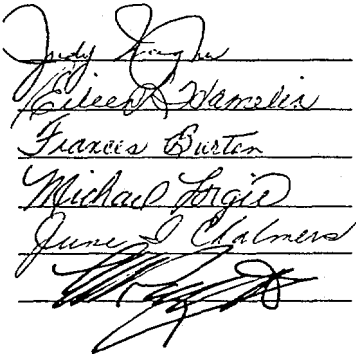 Judy
Eileen D Hamelin
Frances Burton
Michael Forgie
June I Chalmers